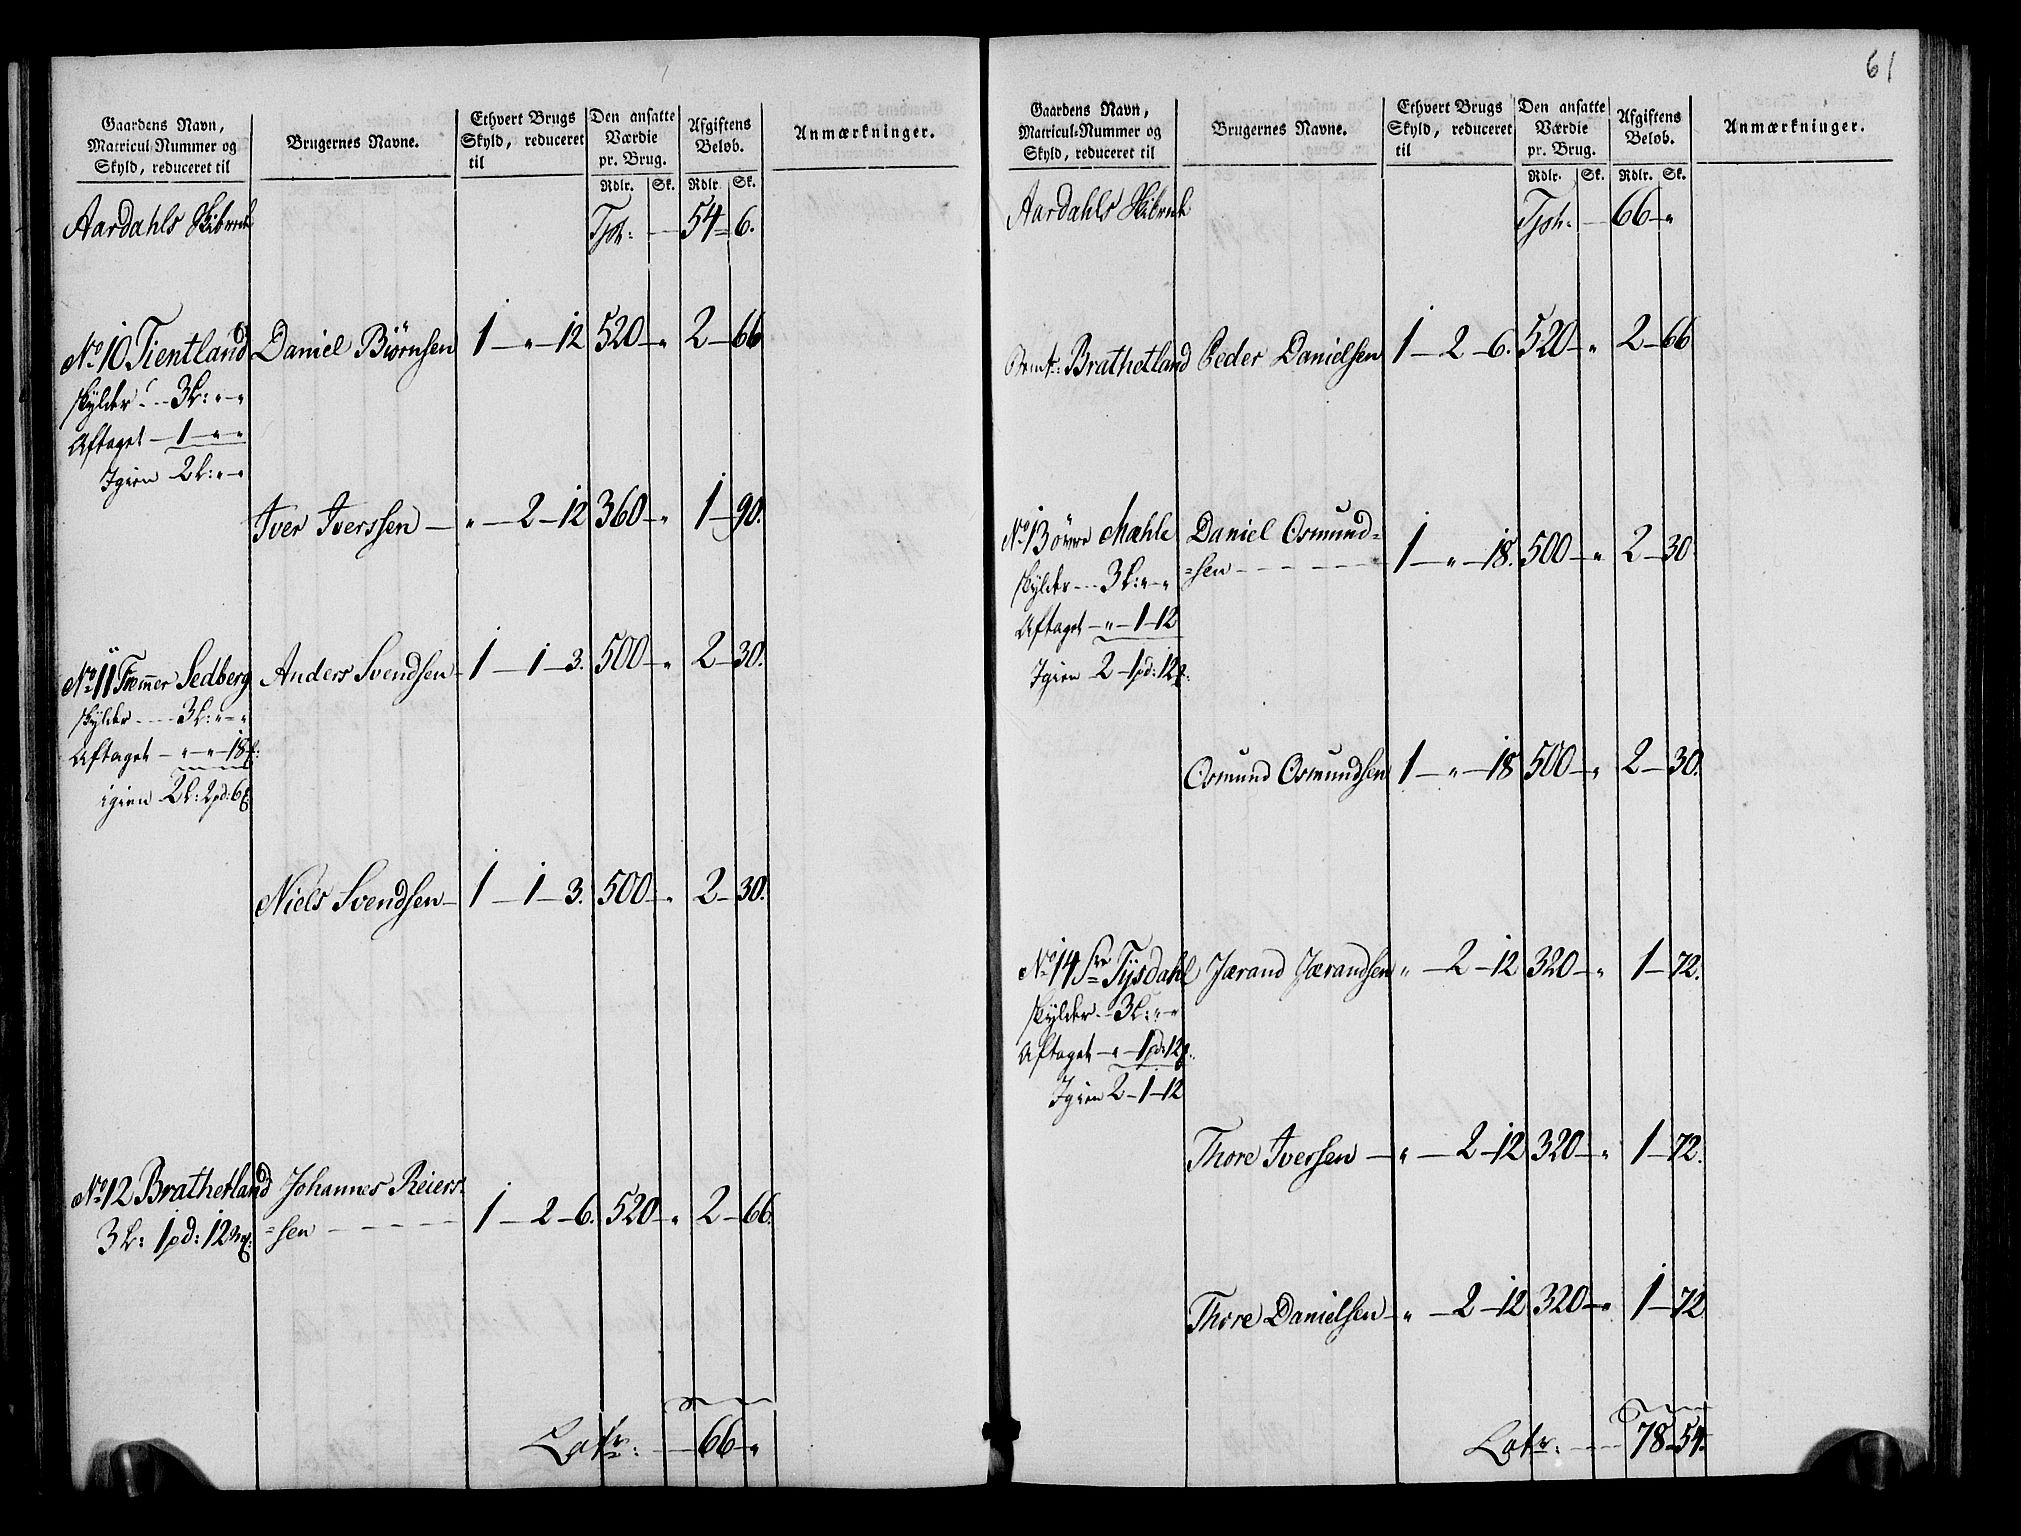 Gaardens Navn,
Matricul-Nummer og
Skyld, reduceret til
Brugernes Navne.
Ethvert Brugs
Skyld, reduceret
til
Den ansatte
Værdie
pr. Brug.
Rdlr. Sk.
Afgiftens
Beløb.
Rdlr. Sk.
Anmærkninger.
Aardahls Skibrede Tpt: 54 6.
No 10 Tientland Daniel Biørnsen 1 — " — 12 520 — " 2 — 66
skylder 3L: " — "
Aftaget — 1 — " "
Igien 2L: " — "
Iver Iverssen — " — 2 — 12 360 — " 1 — 90.
No 11 Fremmer Sedberg Anders Svendsen 1 — 1 — 3. 500 — " 2 — 30.
skylder 3L: " — "
Aftaget — " — " — 18
igien 2L: 2pd: 6
Niels Svendsen — 1 — 1 — 3. 500 — " 2 — 30.
No 12 Brathetland Johannes Reiers=
3L: 1pd: 12 =sen 1 — 2 — 6. 520 — " 2 — 66.
Latr: 66 — "
61
Gaardens Navn,
Matricul-Nummer og
Skyld, reduceret til
Brugernes Navne.
Ethvert Brugs
Skyld, reduceret
til
Den ansatte
Værdie
pr. Brug.
Rdlr. Sk.
Afgiftens
Beløb.
Rdlr. Sk.
Anmærkninger.
Aardahls Skibrede Tpt: 66 — "
Brathetland Peder Danielsen 1 — 2 — 6. 520 — " 2 — 66
No 13 øvre Mæhle Daniel Osmund=
=sen 1 — " — 18. 500 — " 2 — 30
skylder 3L: " — "
Aftaget — " — 1 — 12
Igien 2 — 1pd: 12
Osmund Osmundsen 1 — " — 18 500 — " 2 — 30.
No 14 Tÿsdahl Jærand Jærandsen " — 2 — 12 320 — " 1 — 72.
skylder 3L: " — "
Aftaget — " — 1pd: 12
Igien 2 — 1 — 12
Thore Iversen — " — 2 — 12 320 — " 1 — 72.
Thore Danielsen — " — 2 — 12 320 — " 1 — 72
Latr: 78 — 54